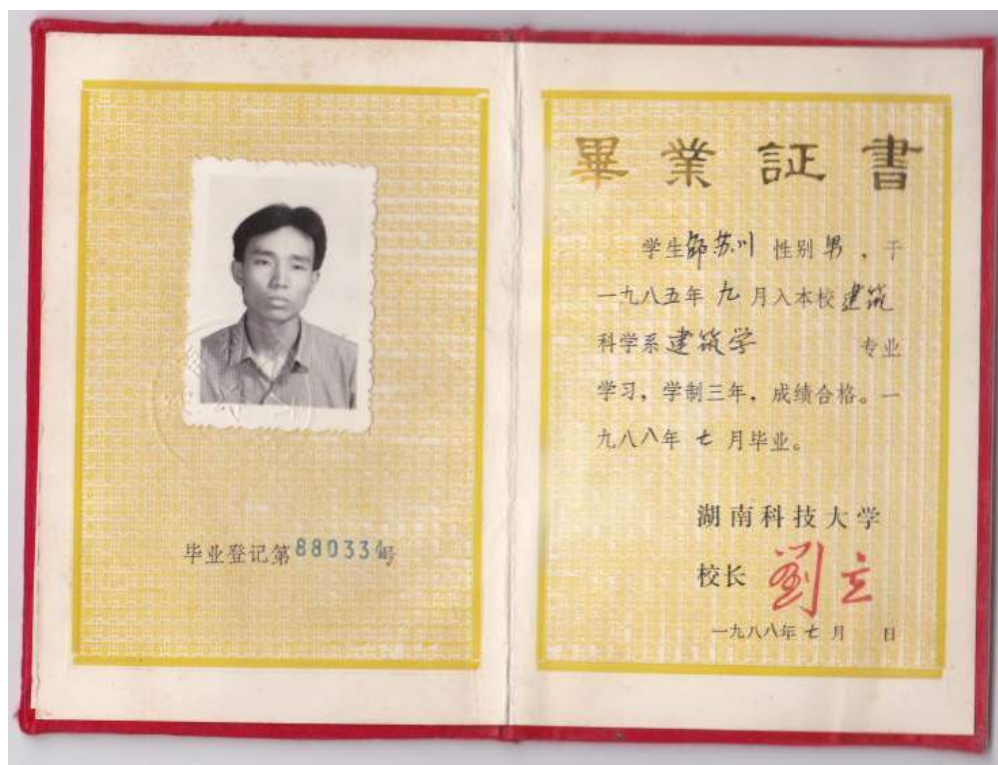 毕业登记第88033号
畢業証書
学生邹苏川 性别男,于
一九八五年 九 月入本校建筑
科学系建筑学 专业
学习,学制三年,成绩合格。一
九八八年 七 月毕业。
湖南科技大学
校长 劉立
一九八八年 七 月 日